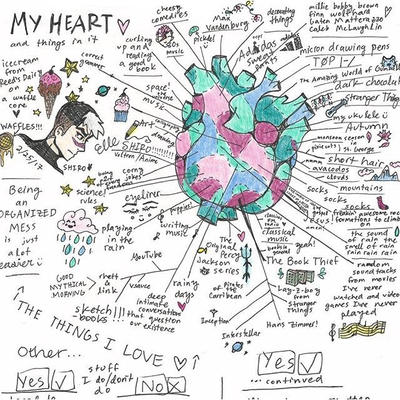 MY HEART
and things in it
icecream
from
Reeds Dairy
a waffle
cone
WAFFLES!!!
2/25/17
SHIRO
correct
grammar
cheesy
comedies
80s
music
curling
up and
reading a
good
book
space!
the
Art
elle
SHIRO!!!!!!!!!
Voltron Anime
Max
Vandenburg
nickel
decorating
things
Adidas
sweat
pants
millie bobby brown
finn wolfhard
Gaten Matterazzo
Caleb McLaughlin
micron drawing pens
TOP
The Amazing World of Gumball
dark chocolate
Stranger Things
my ukulele
Autumn
monsoon season in
St. George
short hair
avacados
clouds
mountains
socks
socks
socks
awesome rock
formations to climb
on
the sound
of rain the
smell of rain
rain rain rain
random
soundtracks
from movies
I've never
watched and video
games I've never
played
Being
an
ORGANIZED
MESS
is just
a lot
easier
science!
rules
being
corny
jokes
eyeliner
puppies!
playing
in the
rain
writing
music
YouTube
GOOD
MYTHICAL
MORNING
rhett &
link
vsauce
sketch
books!!!
deep
intimate
conversations
that question
our existence
rainy
days
Inception
Interstellar
The
Daylight
Percy
Jackson
series
Pirates
of the
Carribean
classical
music
yeah!
The Book Thief
Lay-Z-boy
from
Stranger
Things
Hans Zimmer!
THE THINGS I LOVE
Other...
stuff
I do/don't
do
Yes
No X
Yes
...continued